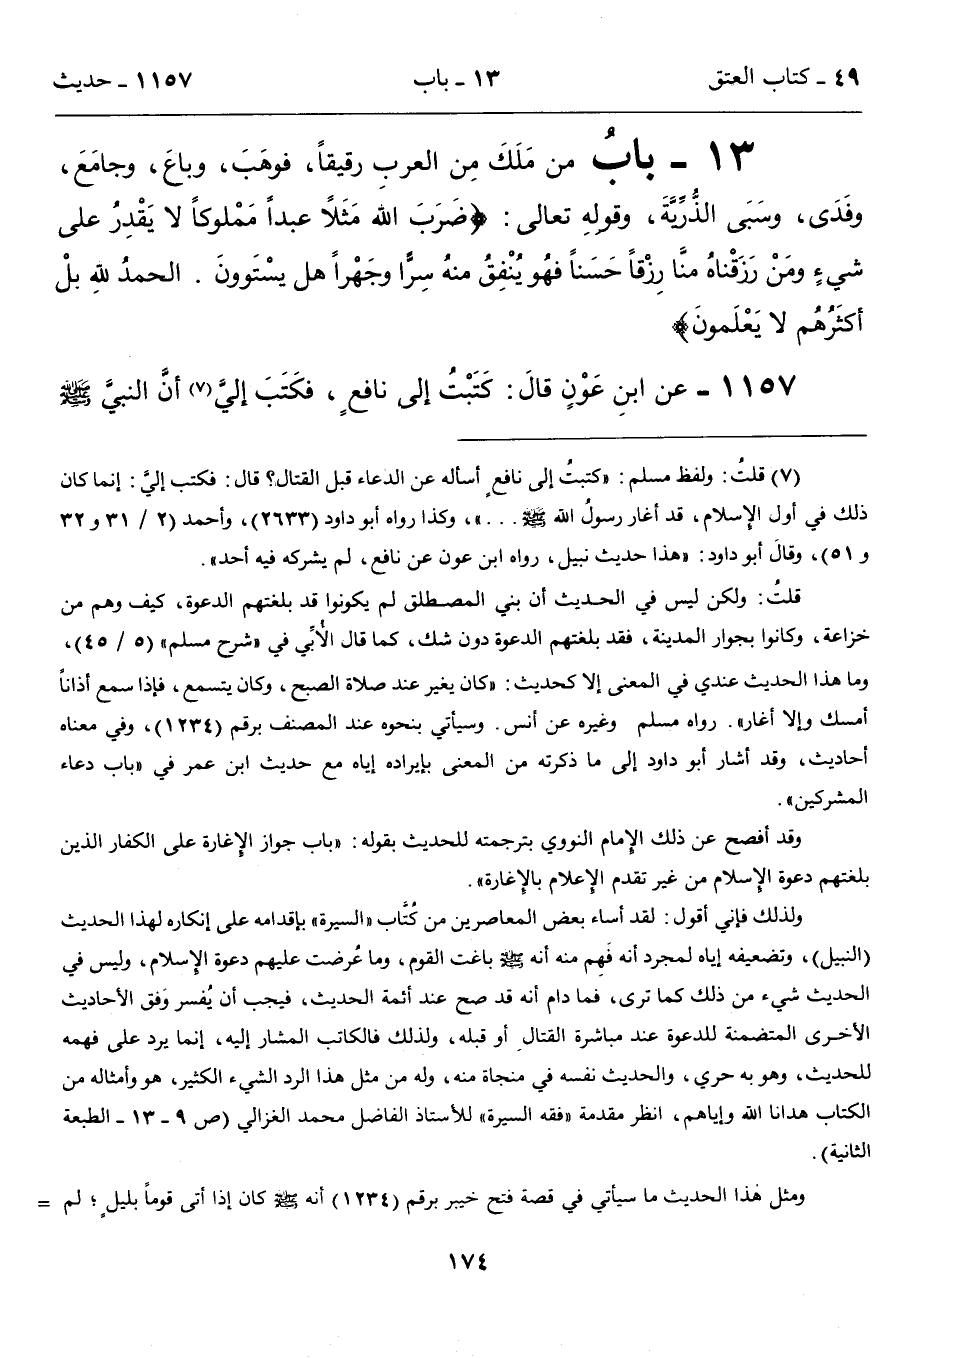 ٤٩ ـ كتاب العتق ١٣ ـ باب ١١٥٧ ـ حديث
١٣ ـ بابُ من مَلَكَ مِن العربِ رقيقاً، فوهَبَ، وباعَ، وجامَعَ،
وفَدَى، وسَبَى الذُّرِّيَّةَ، وقولِهِ تعالى: ﴿ضَرَبَ الله مَثَلاً عبداً مَمْلوكاً لا يَقْدِرُ على
شيءٍ ومَنْ رَزَقْناهُ منَّا رِزْقاً حَسَناً فهُو يُنْفِقُ منهُ سِرًّا وجَهْراً هل يسْتَوونَ. الحمدُ للهِ بلْ
أكثَرُهُم لا يَعْلَمونَ﴾
١١٥٧ ـ عن ابنِ عَوْنٍ قالَ: كَتَبْتُ إلى نافعٍ، فكَتَبَ إليَّ(٧) أنَّ النبيَّ ﷺ
(٧) قلتُ: ولفظ مسلم: «كتبتُ إلى نافعٍ أسأله عن الدعاء قبل القتال؟ قال: فكتب إليَّ: إنما كان
ذلك في أول الإسلام، قد أغار رسولُ الله ﷺ ...»، وكذا رواه أبو داود (٢٦٣٣)، وأحمد (٢ / ٣١ و ٣٢
و ٥١)، وقالَ أبو داود: «هذا حديث نبيل، رواه ابن عون عن نافع، لم يشركه فيه أحد».
قلتُ: ولكن ليس في الحديث أن بني المصطلق لم يكونوا قد بلغتهم الدعوة، كيف وهم من
خزاعة، وكانوا بجوار المدينة، فقد بلغتهم الدعوة دون شك، كما قال الأُبِّي في «شرح مسلم» (٥ / ٤٥)،
وما هذا الحديث عندي في المعنى إلا كحديث: «كان يغير عند صلاة الصبح، وكان يتسمع، فإذا سمع أذاناً
أمسك وإلا أغار». رواه مسلم وغيره عن أنس. وسيأتي بنحوه عند المصنف برقم (١٢٣٤)، وفي معناه
أحاديث، وقد أشار أبو داود إلى ما ذكرته من المعنى بإيراده إياه مع حديث ابن عمر في «باب دعاء
المشركين».
وقد أفصح عن ذلك الإمام النووي بترجمته للحديث بقوله: «باب جواز الإغارة على الكفار الذين
بلغتهم دعوة الإسلام من غير تقدم الإعلام بالإغارة».
ولذلك فإني أقول: لقد أساء بعض المعاصرين من كُتَّاب «السيرة» بإقدامه على إنكاره لهذا الحديث
(النبيل)، وتضعيفه إياه لمجرد أنه فَهِم منه أنه ﷺ باغت القوم، وما عُرضت عليهم دعوة الإسلام، وليس في
الحديث شيء من ذلك كما ترى، فما دام أنه قد صح عند أئمة الحديث، فيجب أن يُفسر وَفق الأحاديث
الأخرى المتضمنة للدعوة عند مباشرة القتال أو قبله، ولذلك فالكاتب المشار إليه، إنما يرد على فهمه
للحديث، وهو به حري، والحديث نفسه في منجاة منه، وله من مثل هذا الرد الشيء الكثير، هو وأمثاله من
الكتاب هدانا الله وإياهم، انظر مقدمة «فقه السيرة» للأستاذ الفاضل محمد الغزالي (ص ٩ ـ ١٣ ـ الطبعة
الثانية).
ومثل هٰذا الحديث ما سيأتي في قصة فتح خيبر برقم (١٢٣٤) أنه ﷺ كان إذا أتى قوماً بليلٍ؛ لم =
١٧٤